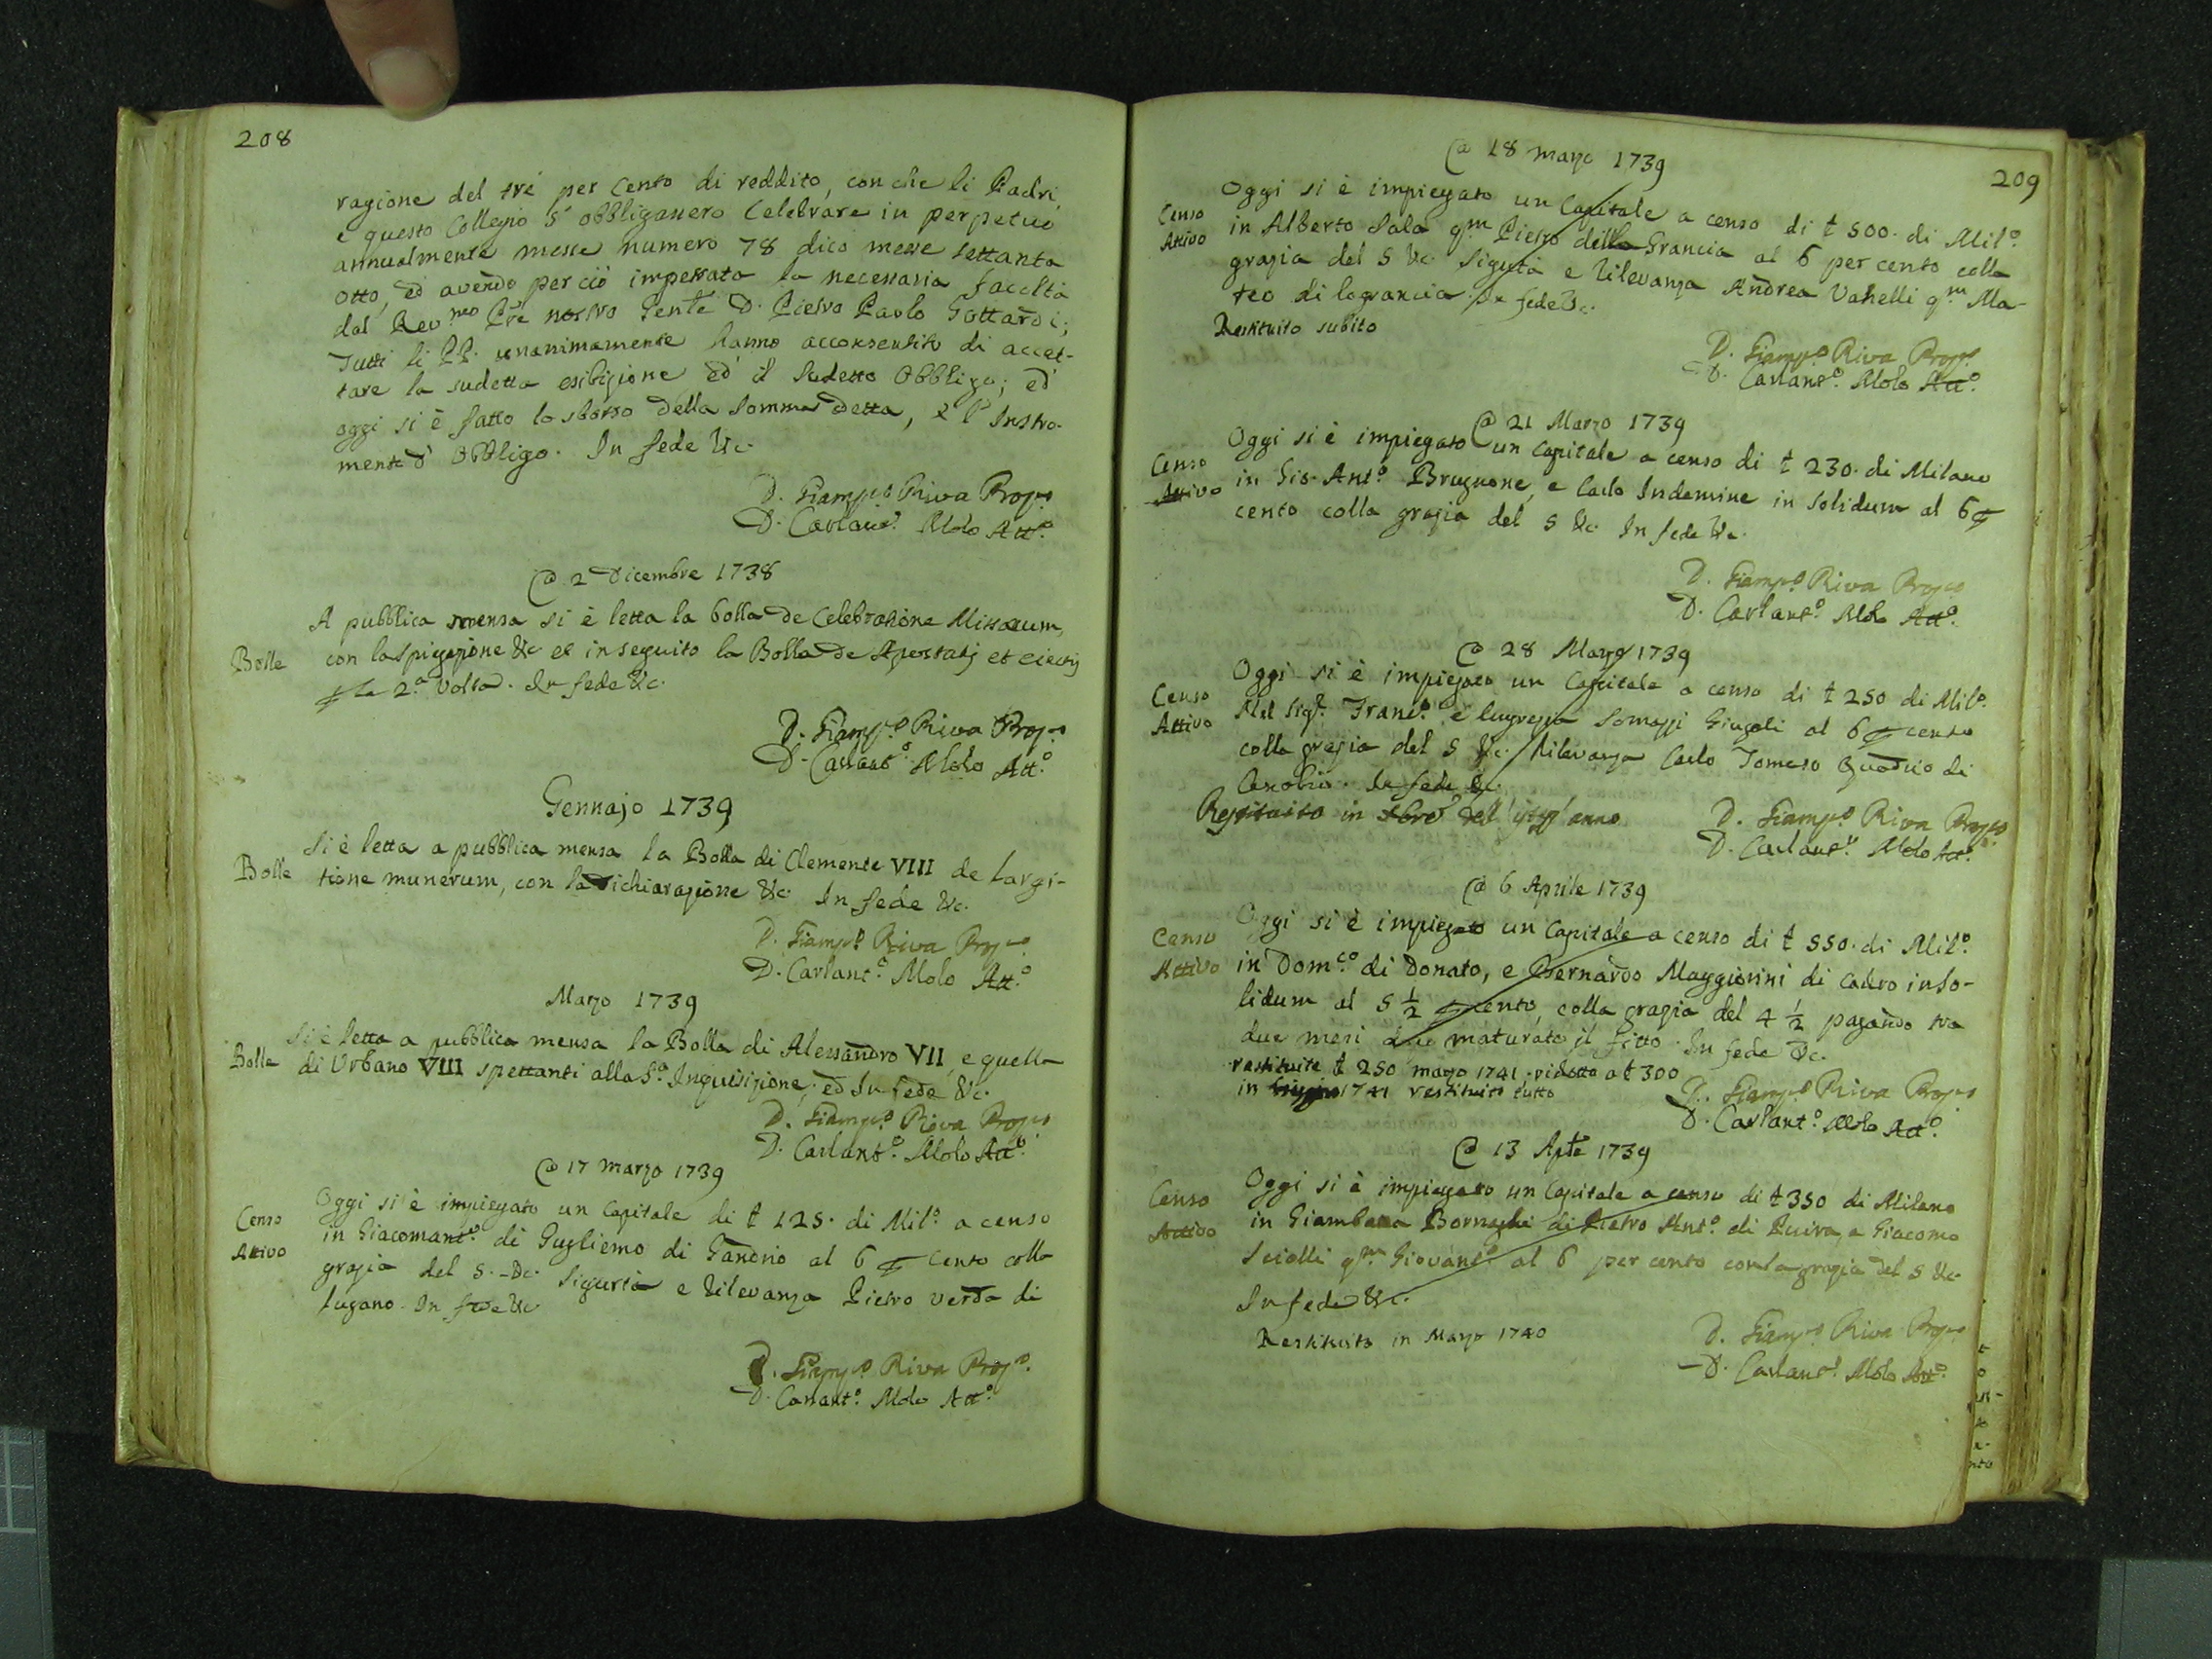 208
ragione del tré per Cento di reddito, con che li Padri,
e questo Collegio s' obbligassero Celebrare in perpetuo
annualmente messe numero 78 dico messe settanta
otto, ed avendo per ciò impetrata la necessaria facoltà
dal Rev.mo Pre nostro Gente D. Pietro Paolo Gottardi;
Tutti li PP. unanimamente hanno acconsentito di accet-
tare la sudetta esibizione ed il sudetto obbligo; ed
oggi si è fatto lo sborso della somma detta, e l' Instro-
mento d' obbligo. In fede &c.
D. Giamp.o Riva Prop.o
D. Carlant.o Molo Att.o
@ 2 Dicembre 1738
Bolle
A pubblica mensa si è letta la bolla de Celebratione Missarum,
con la spiegazione &c et in seguito la Bolla de Apostatis et eiectis
la 2.a volta. In fede &c.
D. Giamp.o Riva Prop.o
D. Carlant.o Molo Att.o
Gennajo 1739
Bolle
Si è letta a pubblica mensa la Bolla di Clemente VIII de largi-
tione munerum, con la dichiarazione &c. In fede &c.
D. Giamp.o Riva Prop.o
D. Carlant.o Molo Att.o
Marzo 1739
Bolle
Si è letta a pubblica mensa la Bolla di Alessandro VII, e quella
di Urbano VIII spettanti alla S.a Inquisizione; ed In fede &c.
D. Giamp.o Riva Prop.o
D. Carlant.o Molo Att.o
@ 17 marzo 1739
Censo
Attivo
Oggi si è impiegato un Capitale di ł 125. di Mil.o a censo
in Giacomant.o di Guglielmo di Gandrio al 6 p cento colla
grazia del 5. &c. Sigurtà e rilevanza Pietro Verda di
Lugano. In fede &c
D. Giamp.o Riva Prop.o
D. Carlant.o Molo Att.o
209
@ 18 marzo 1739
Censo
Attivo
Oggi si è impiegato un Capitale a censo di ł 500. di Mil.o
in Alberto Sala qm Pietro della Grancia al 6 per cento colla
grazia del 5 &c. Sigurtà e rilevanza Andrea Vanelli qm Ma-
teo di lagrancia. In fede &c.
Restituito subito
D. Giamp.o Riva Prop.o
D. Carlant.o Molo Att.o
@ 21 Marzo 1739
Censo
Attivo
Oggi si è impiegato un capitale a censo di ł 230. di Milano
in Gio. Ant.o Brugnone, e Carlo Indemine in solidum al 6 p
cento colla grazia del 5 &c. In fede &c.
D. Giamp.o Riva Prop.o
D. Carlant.o Molo Att.o
@ 28 Marzo 1739
Censo
Attivo
Oggi si è impiegato un Capitale a censo di ł 250 di Mil.o
Nel Sig.r Franc.o e Somazzi al 6 p cento
colla grazia del 5 &c. rilevanza Carlo Tomaso Quadrio di
In fede &c.
Restituito in dell' anno
D. Giamp.o Riva Prop.o
D. Carlant.o Molo Att.o
@ 6 Aprile 1739
Censo
Attivo
Oggi si è impiegato un Capitale a censo di ł 550. di Mil.o
in Dom.co di Donato, e Bernardo Maggiorini di Cadro in so-
lidum al 5 ½ p cento, colla grazia del 4 ½ pagando tra
due mesi maturato il fitto. In fede &c.
restituite ł 250 marzo 1741. ridotto a ł 300
in 1741 restituito tutto
D. Giamp.o Riva Prop.o
D. Carlant.o Molo Att.o
@ 13 Aple 1739
Censo
Attivo
Oggi si è impiegato un Capitale a censo di ł 350 di Milano
in Giambatta di Pietro Ant.o di e Giacomo
qm Giovan al 6 per cento con la grazia del 5 &c.
In fede &c.
Restituito in Marzo 1740
D. Giamp.o Riva Prop.o
D. Carlant.o Molo Att.o